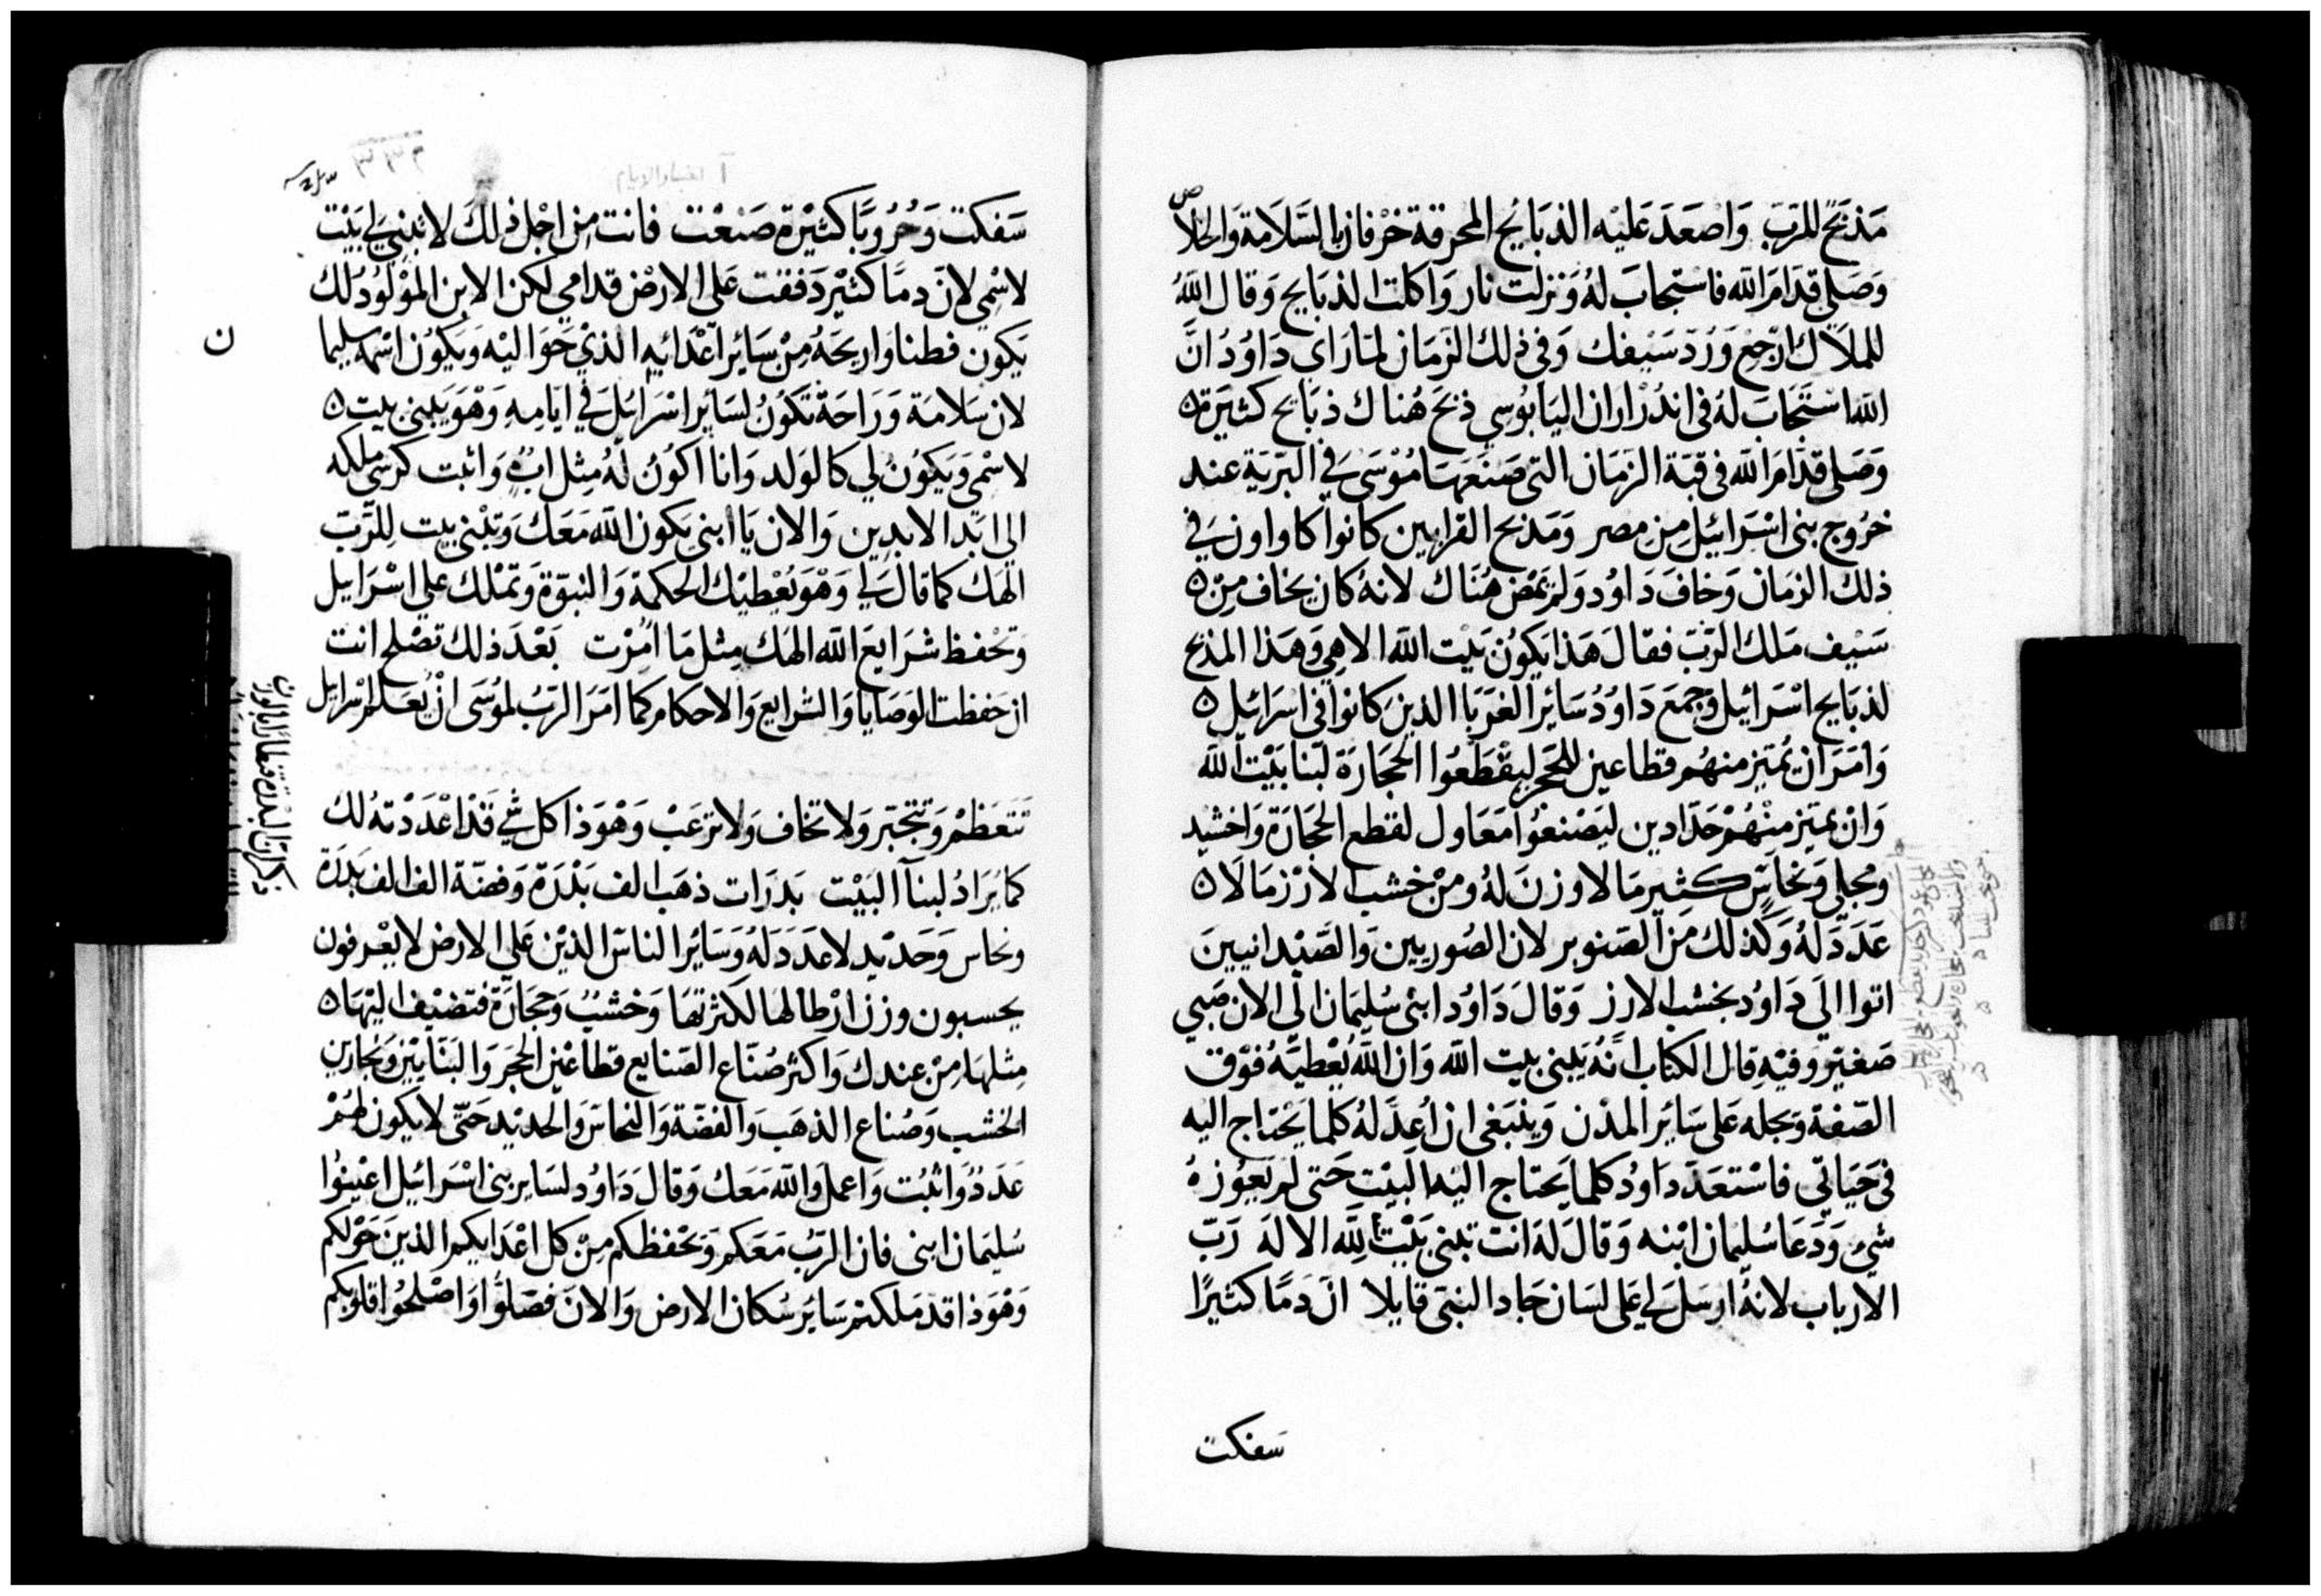 مَذبَحٌ للرَبّ وَاصْعَدَ عَليْه الذبَايُح المحرقة خرْفان بالسَّلامَة وَالخلاص
وَصَلي قدَامَ الله فاستجابَ لهُ وَنزلت نار وَاكلت الذبَايح وَقال اللهُ
للملاَك ارْجِع وَرُدّ سَيْفك وَفي ذلك الزمَان لمّا رَاى دَاوُدُ انَّ
الله اسْتَجَابَ لهُ في اندُرْ اران اليَابُوسِي ذبَحَ هُناك ذبَايح كثيرَة
وَصَلي قدَّامَ الله في قبّة الزمَان التي صَنَعَهَا مُوْسَى في البَرّيَة عند
خرُوج بني اسْرَائيْل مِن مصر وَمَذبح القرابين كانوا كاواوزَ في
ذلك الزمَان وَخافَ دَاوُد وَلم يَمْض هُنَاك لانهُ كان يخاف مِنْ
سَيْف مَلاك الرَبّ فقالَ هَذا يَكونُ بَيْت الله الاهِي وَهَذا المذبح
لذبَايح اسْرَائيل وَجَمعَ دَاوُدُ سَائِر الغرَبَا الذينَ كانوا في اسْرَائيل
وَامَرَ ان يُميَّز منهُم قطاعين للحَجر ليقْطَعُوا الحِجَارَة لبنا بَيْت الله
وَان يميّز منْهُمْ حَدّادين ليَصْنعُوا مَعَاول لقطع الحِجَارَة وَاخشيد
ومجلي وَنحاسٌ كثير مَا لا وزنَ لهُ ومِنْ خشب الارْز مَا لا
عَدَدَ لهُ وَكذلك مَن الصَنوبر لان الصُوريين وَالصَّيْدانيينَ
اتوا الي دَاوُد بخشب الارز وَقالَ دَاوُد ابني سُليمَان الي الان صَبي
صَغيْر وفيْهِ قال الكتاب انّهُ يَبني بيت الله وَان الله يُعْطيَهُ فوْق
الصّفة وَبجله عَلى سَائِر المدُن وَينبَغي ان اُعِدَّ لهُ كلما يَحْتاج اليه
في حَيَاتي فاسْتعَدَّ دَاوُد كلما يَحتاج اليْه البيْت حَتى لم يَعُوزهُ
شيْءٌ وَدَعَا سُليمان ابْنه وَقالَ لهَ انتَ تبني بَيْت لله الالهَ رَبّ
الارباب لانهُ ارسَل لي عَلى لسَان جَاد النبيّ قايلا انّ دَمًا كثيرًا
سَفكت
سَفكت وَحُرُوبًا كثيْرة صَنعْت فانت مِن اجْل ذلك لا تبْنِي لي بَيْت
لاسْمِي لانّ دمًا كثيْر دَفقت عَلى الارْض قدامي لكن الابن المَوْلُودُ لك
يَكون فطنا وَاريحَهُ مِنْ سَائِر اعْدَائِه الذيْ حَوَاليْه وَيَكُوْن اسْمَه سليما
ن
لان سَلامَة وَرَاحَة تكونُ لسَائِر اسْرَائل في ايَامِه وَهْوَ يَبْني بيت
لاسْمي وَيَكوُنُ لي كالوَلد وَانا اكوُنُ لهُ مِثل ابٍ وَاثبت كرسي ملكه
الي ابَد الابدِين وَالان يَا ابني يَكون الله مَعَك وَتبْني بيت لِلرَّبّ
الهَك كما قال لي وَهْوَ يُعْطيْك الحكمَة وَالنبوّة وَتمْلك علي اسْرَاييل
وَتحْفظ شرَايعَ الله الهَك مِثل مَا امِرْت بَعْدَ ذلك تصْلح انت
ان حَفظت الوَصَايا وَالشرايعَ وَالاحكام كما امَرَ الرَبُ لمُوْسَى انْ يُعَلم اسْرايل
تتَعَظمْ وَتتجَبّر وَلا تخاف وَلا ترعَبْ وَهْوَذا كل شي قدْ اعْدَدْتهُ لك
كما يَرَادُ لبنآ البَيْت بَدرَات ذهَب الف بَدْرَة وَفضّة الف الف بَدرَة
وَنحاس وَحَدْيد لا عَدَدَ لهُ وَسَائِر الناسَ الذيْن عَلي الارض لا يعْرفون
يحسبون وزن ارْطالهَا لكثرتهَا وَخشبٌ وَحجَارَة فتضيْف اليْهَا
مثلهَا مِنْ عندك وَاكثر صُنّاع الصَنايع قطاعْيْن الحجَر وَالبَنّايين وَنجارين
الخشب وَصُناع الذهَب وَالفضّة وَالنحاسَ وَالحديْد حَتّى لا يكون لهُمْ
عَدَدٌ وَاثبُت وَاعمل وَالله مَعَك وَقال دَاوُد لسَاير بني اسْرَائيل اعْيْنوُا
سُليمَان ابني فان الرَبُّ مَعَكم وَيَحْفظكم مِنْ كل اعْدَايكم الذينَ حَوْلكم
وَهْوَذا قدْ مَلكتم سَايَر سُكان الارض وَالانَ فصَلوُّا وَاصْلحُوا قلوبكم